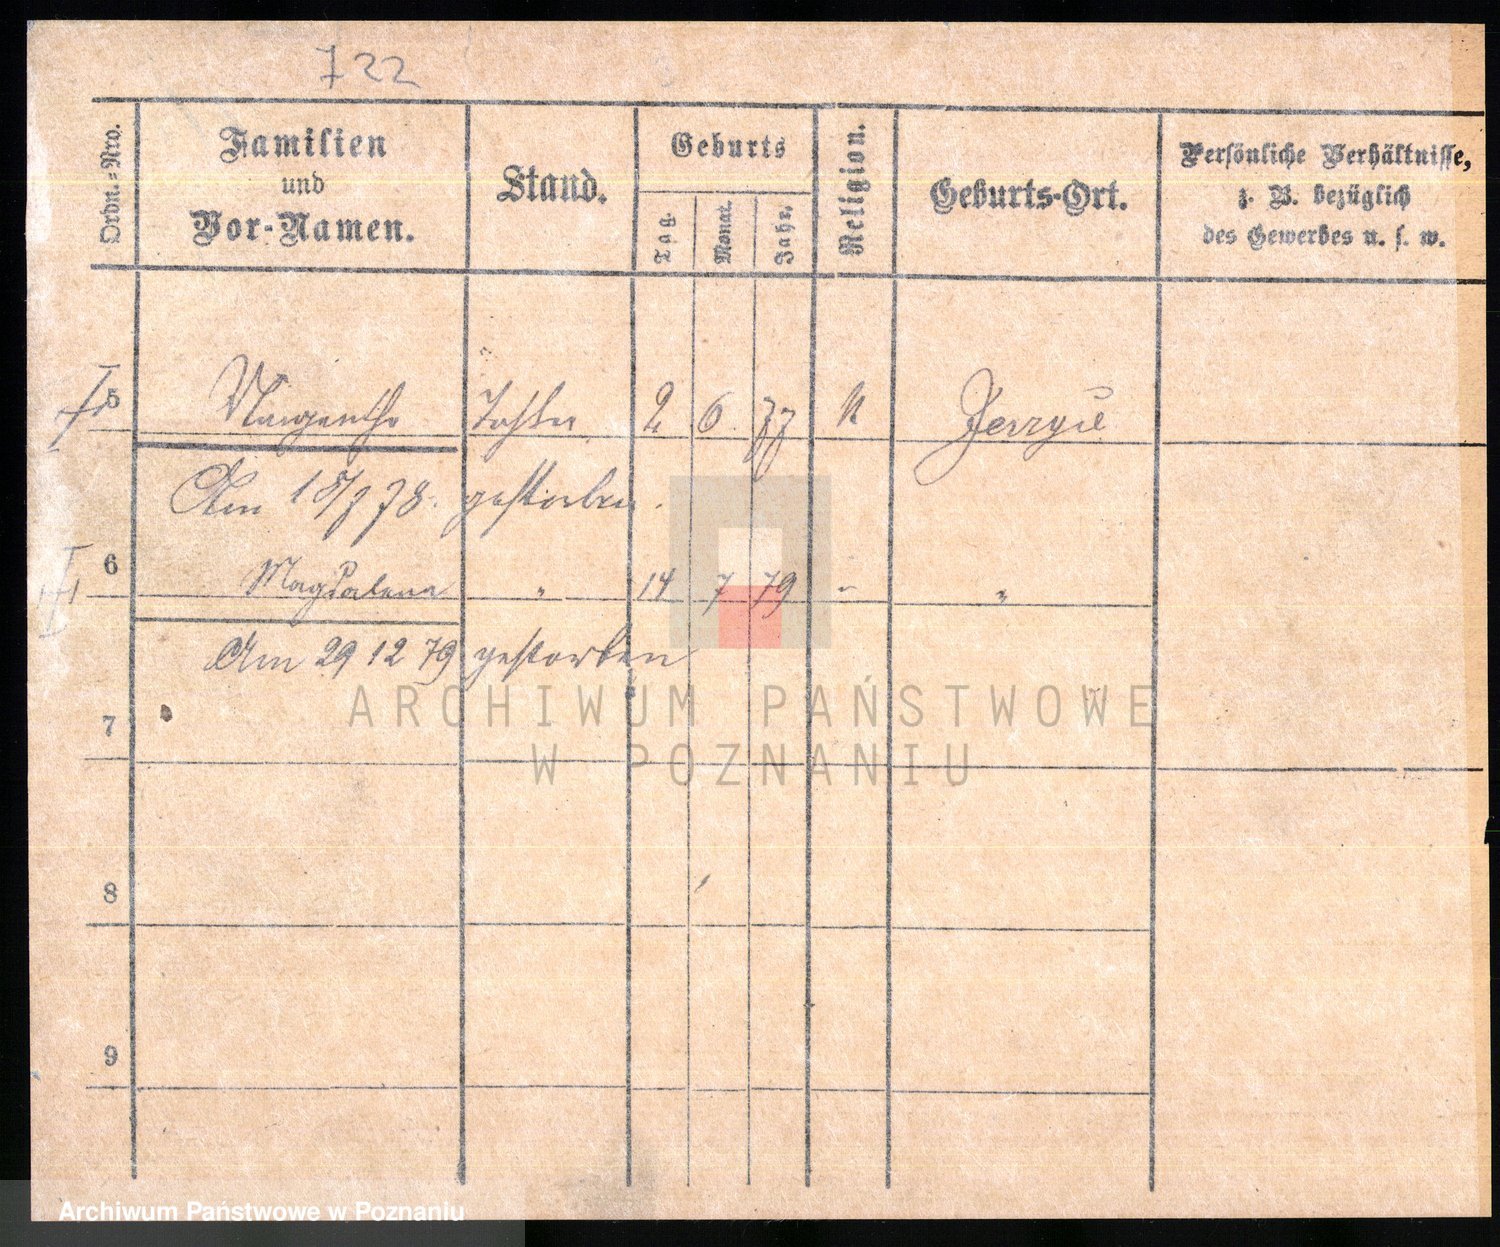 722
Ordn.-Nro.
Familien
und
Vor-Namen.
Stand.
Geburts
Tag.
Monat.
Jahr.
Religion.
Geburts-Ort.
Persönliche Verhältnisse,
z. B. bezüglich
des Gewerbes u. s. w.
5 Margaretha Tochter 2 6. 77 K Jerzyce
Am 18/7 78. gestorben.
6 Magdalena " 14 7 79 " "
Am 29 12 79 gestorben
7
ARCHIWUM PAŃSTWOWE
W POZNANIU
8
9
Archiwum Państwowe w Poznaniu